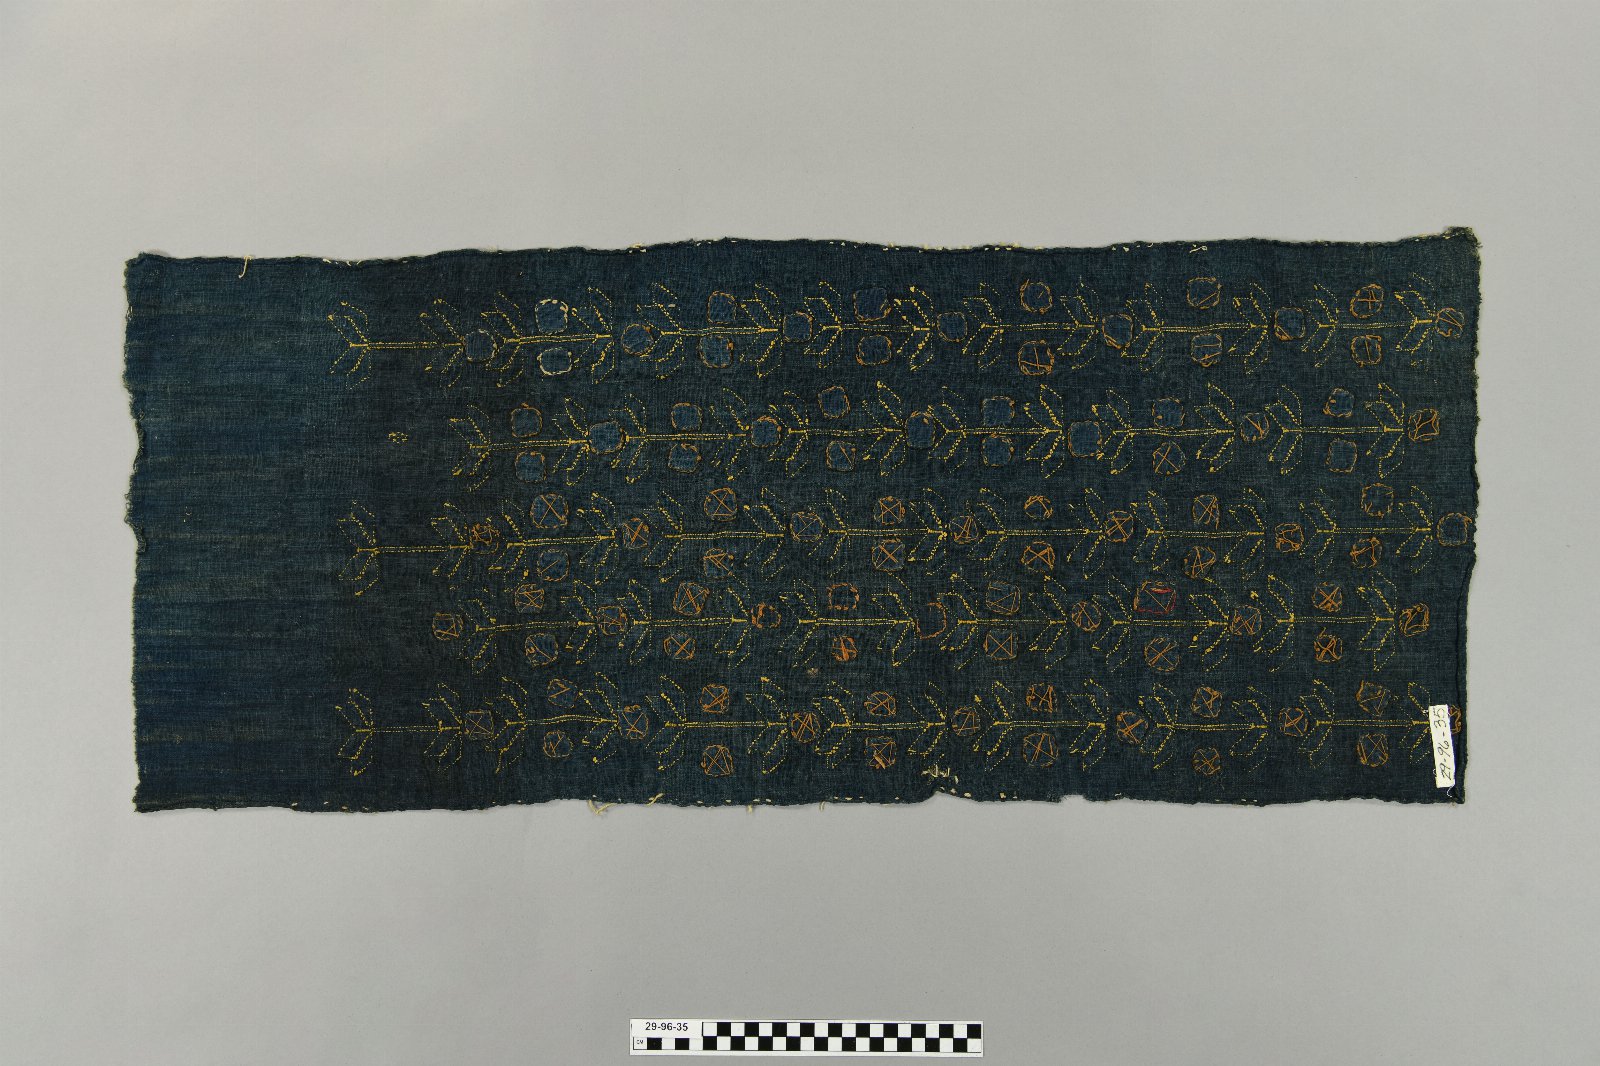 29-96-35
29-96-35
CM